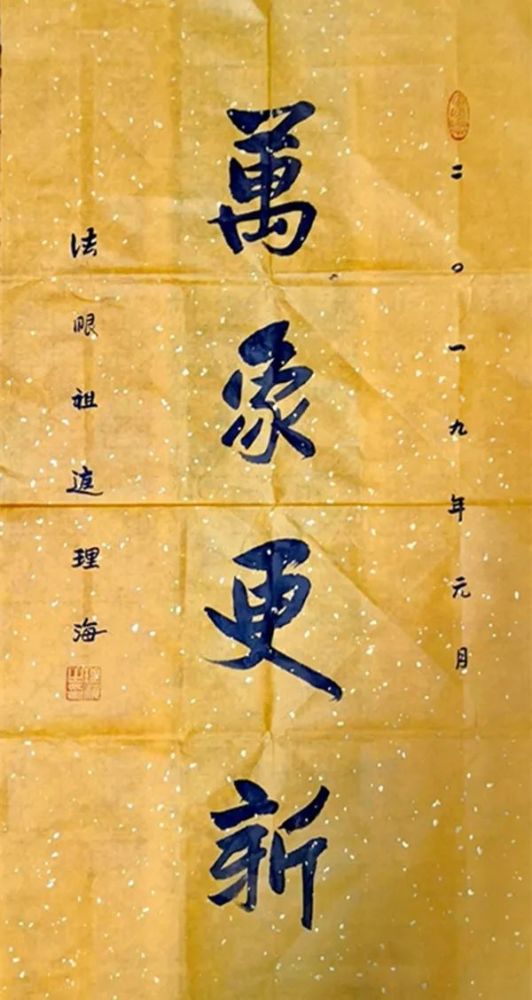 二〇一九年元月
萬象更新
法眼祖庭理海